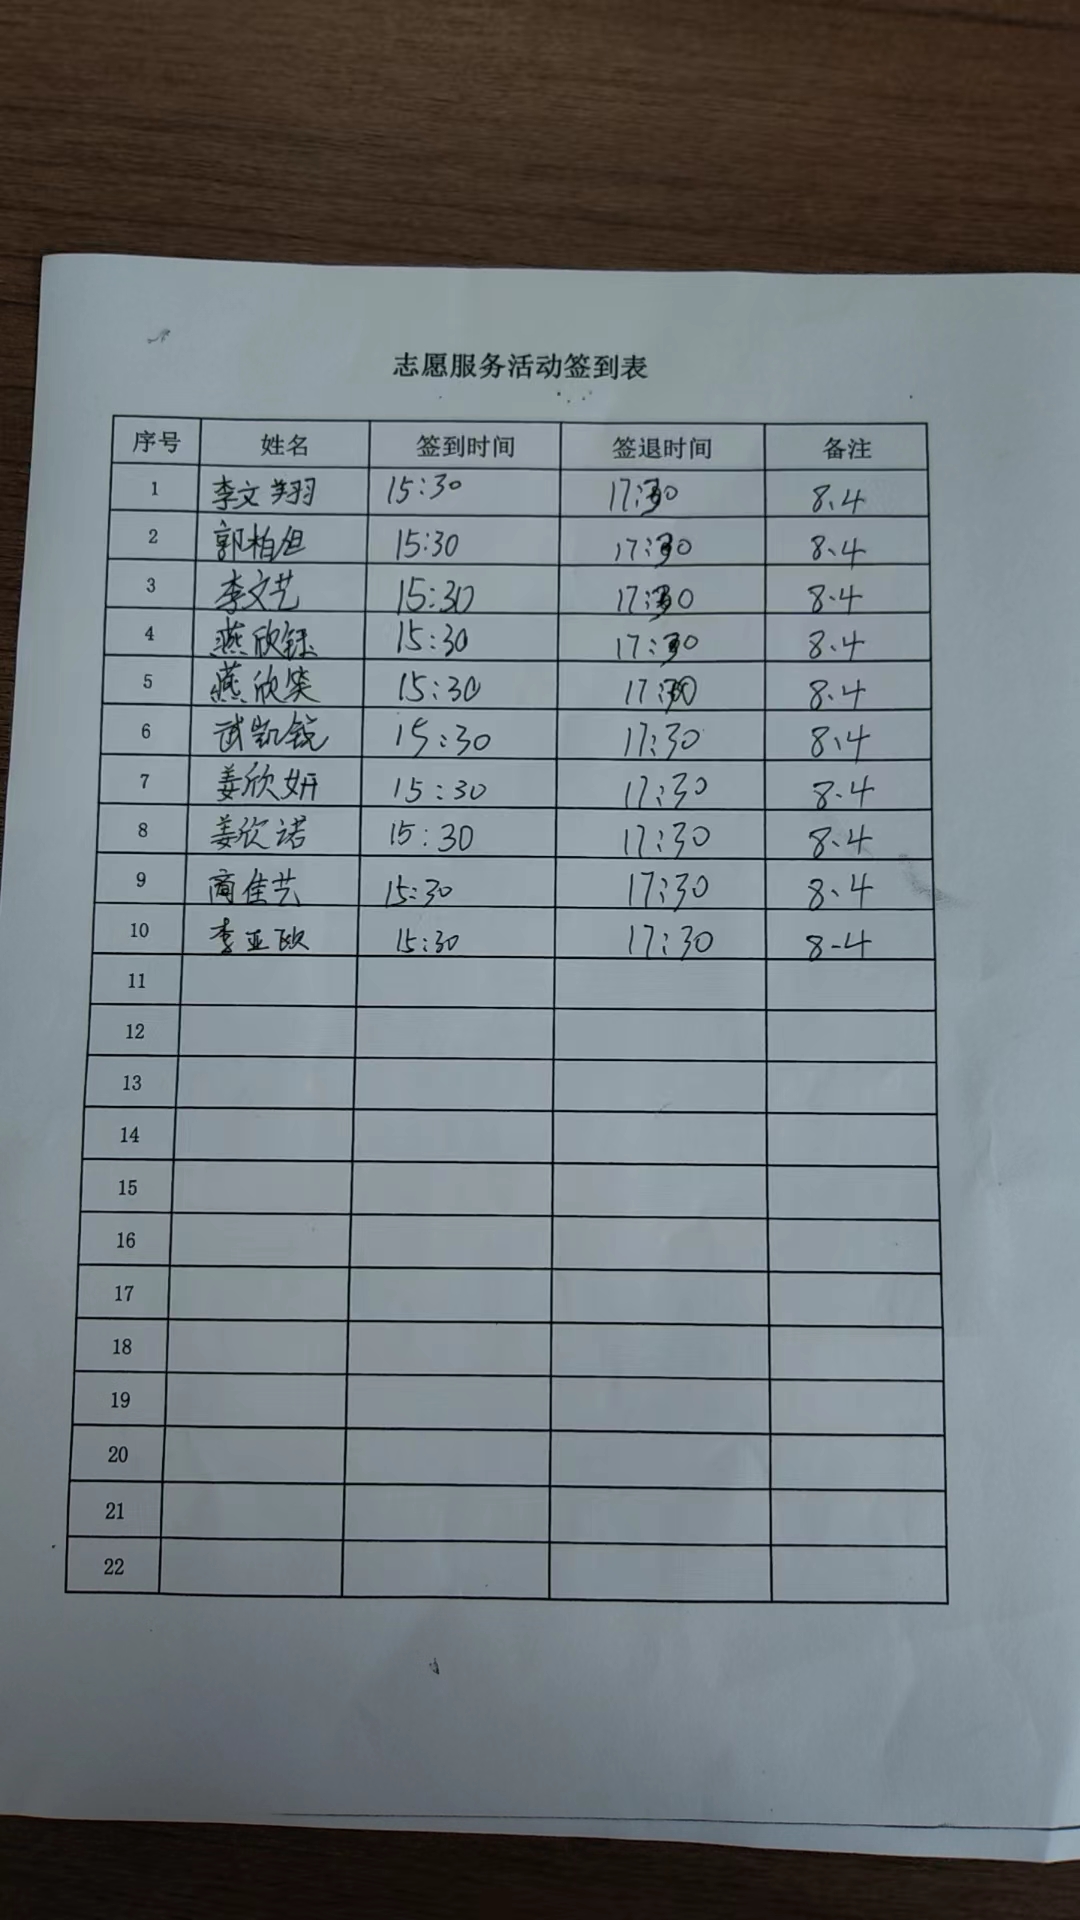 志愿服务活动签到表
序号 姓名 签到时间 签退时间 备注
1 李文翔 15:30 17:30 8.4
2 郭柏但 15:30 17:30 8.4
3 李文艺 15:30 17:30 8.4
4 燕欣 15:30 17:30 8.4
5 燕欣 15:30 17:30 8.4
6 武凯锐 15:30 17:30 8.4
7 姜欣妍 15:30 17:30 8.4
8 姜欣诺 15:30 17:30 8.4
9 商佳艺 15:30 17:30 8.4
10 李亚欧 15:30 17:30 8-4
11
12
13
14
15
16
17
18
19
20
21
22